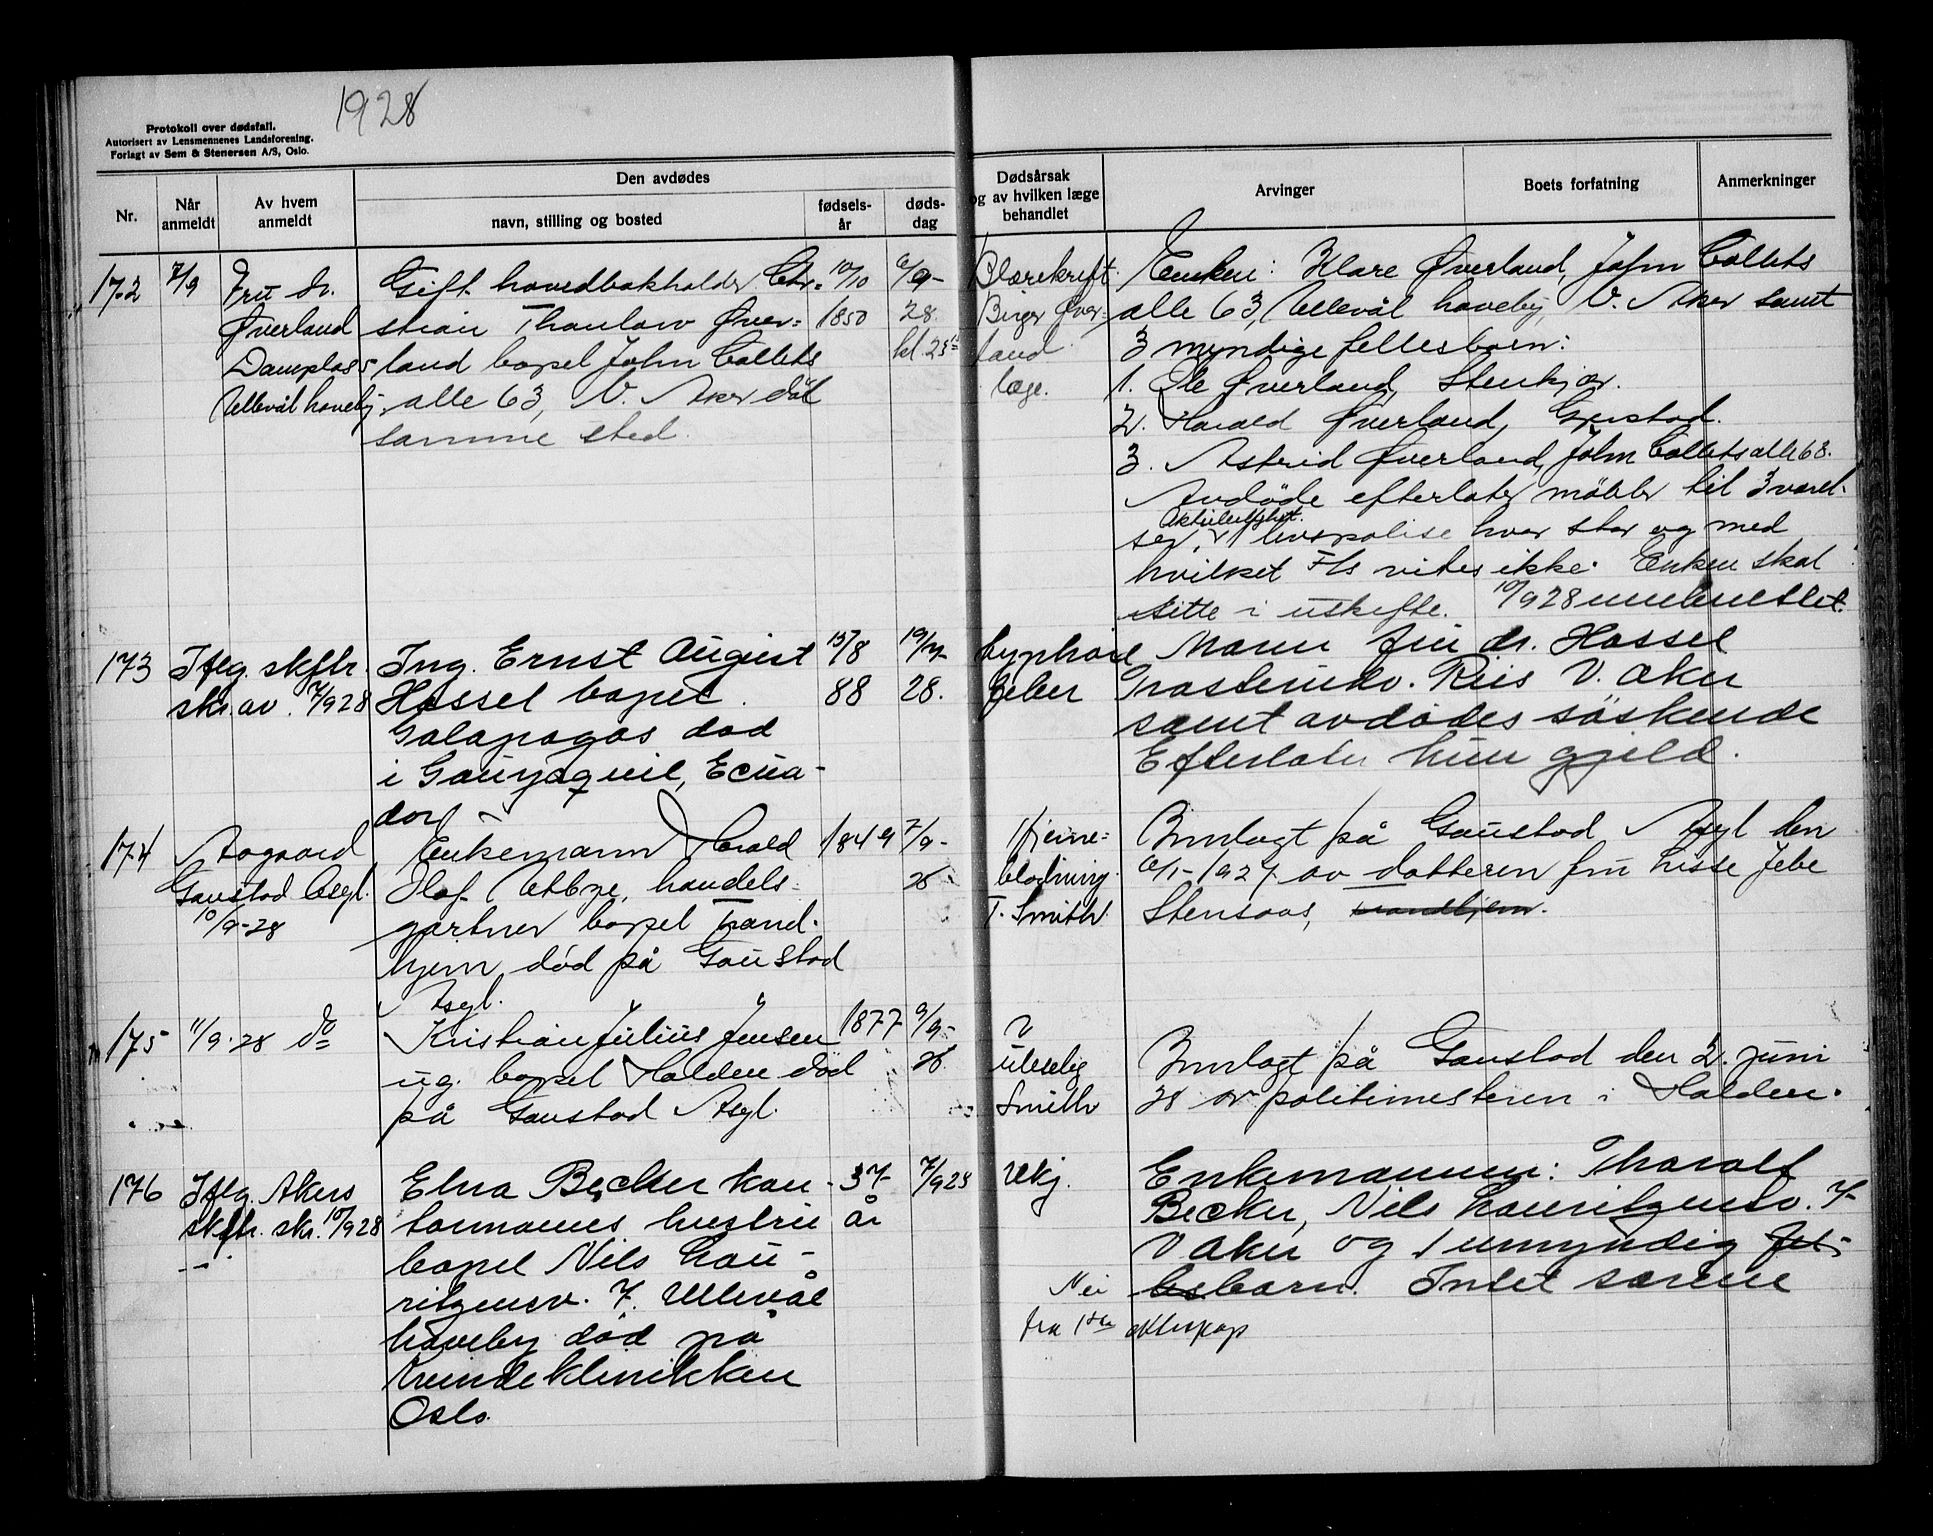 1928
Protokoll over dødsfall.
Autorisert av Lensmennenes Landsforening.
Forlagt av Sem & Stenersen A/S, Oslo.
Nr.
Når anmeldt
Av hvem anmeldt
Den avdødes
navn, stilling og bosted
fødsels-år
døds-dag
Dødsårsak og av hvilken læge behandlet
Arvinger
Boets forfatning
Anmerkninger
172 7/9
Fru dr.
Øverland
Damplass
Ullevål haveby
Gift hovedbokholder Chr-
stian Thaulow Øver=
land bopel John Collets
alle 63, V. Aker død
samme sted.
10/10
1850
6/9-
28.
Blærekreft
Birger Øver-
land
læge.
Enken: Klare Øverland, John Collets
alle 63, Ullevål haveby, V. Aker samt
3 myndige fellesbarn:
1. Ole Øverland, Stenkjær.
2. Harald Øverland, Gjerstad.
3. Astrid Øverland, John Collets alle 63.
Avdøde efterlater møbler til 3 værel-
ser, livspolise hvor stor og med
hvilket vites ikke. Enken skal
sitte i uskifte. 10/9 28
173
Iflg. skftr.
skr. av 7/9 28
Ing. Ernst August
Hassel bopel
Galapagos død
i Gauyaquil, Ecua-
dor
15/8
88
19/7-
28.
typhoid
feber
Mann fru dr. Hassel
Riis V. Aker
samt avdødes søskende
Efterlater kun gjeld.
174
Aagaard
Gaustad Asyl.
10/9-28
Enkemann Harald
Olof Utbye, handels=
gartner bopel Trond-
hjem, død på Gaustad
Asyl.
1849
7/9-
28
Hjerne=
blødning
T. Smith
Innlagt på Gaustad Asyl den
6/1-1927 av datteren fru Lisse Jebe
Stensaas, Trondhjem.
175 11/9-28 do
Kristian Julius Jensen
ug. bopel Halden død
på Gaustad Asyl.
1877
9/9-
28.
Smith
Innlagt på Gaustad den 2. juni
28 av politimesteren i Halden.
176
Iflg. Akers
skftr. skr. 10/9 28
Elna Becker kon-
tormannes hustru
bopel Nils Lau-
ritzensv. 7. Ullevål
haveby død på
Kvindeklinikken
Oslo.
37
år
7/9 28
Ukj.
Enkemannen: Tharalf
Becker, Nils Lauritzensv. 7
V Aker og 1 umyndig fel-
lesbarn. Intet særeie
Nei
fra